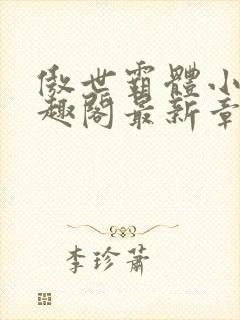 傲世霸體小
趣閣最新章
李珍蕭